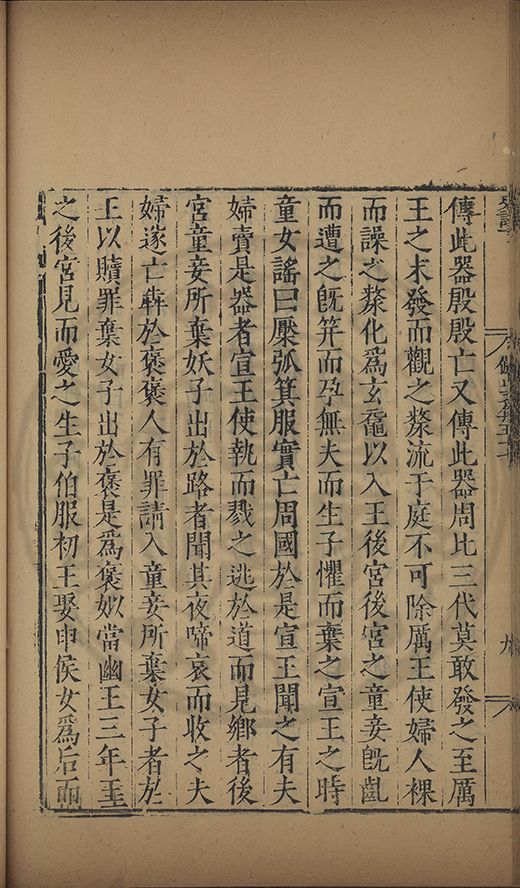 傳此器殷殷亡又傳此器周比三代莫敢發之至厲
王之末發而觀之漦流于庭不可除厲王使婦人裸
而譟之漦化為玄黿以入王後宮後宮之童妾既齓
而遭之既笄而孕無夫而生子懼而棄之宣王之時
童女謠曰檿弧箕服實亡周國於是宣王聞之有夫
婦賣是器者宣王使執而戮之逃於道而見鄉者後
宮童妾所棄妖子出於路者聞其夜啼哀而收之夫
婦遂亡犇於褒褒人有罪請入童妾所棄女子者於
王以贖罪棄女子出於褒是為褒姒當幽王三年王
之後宮見而愛之生子伯服初王娶申侯女為后而
九